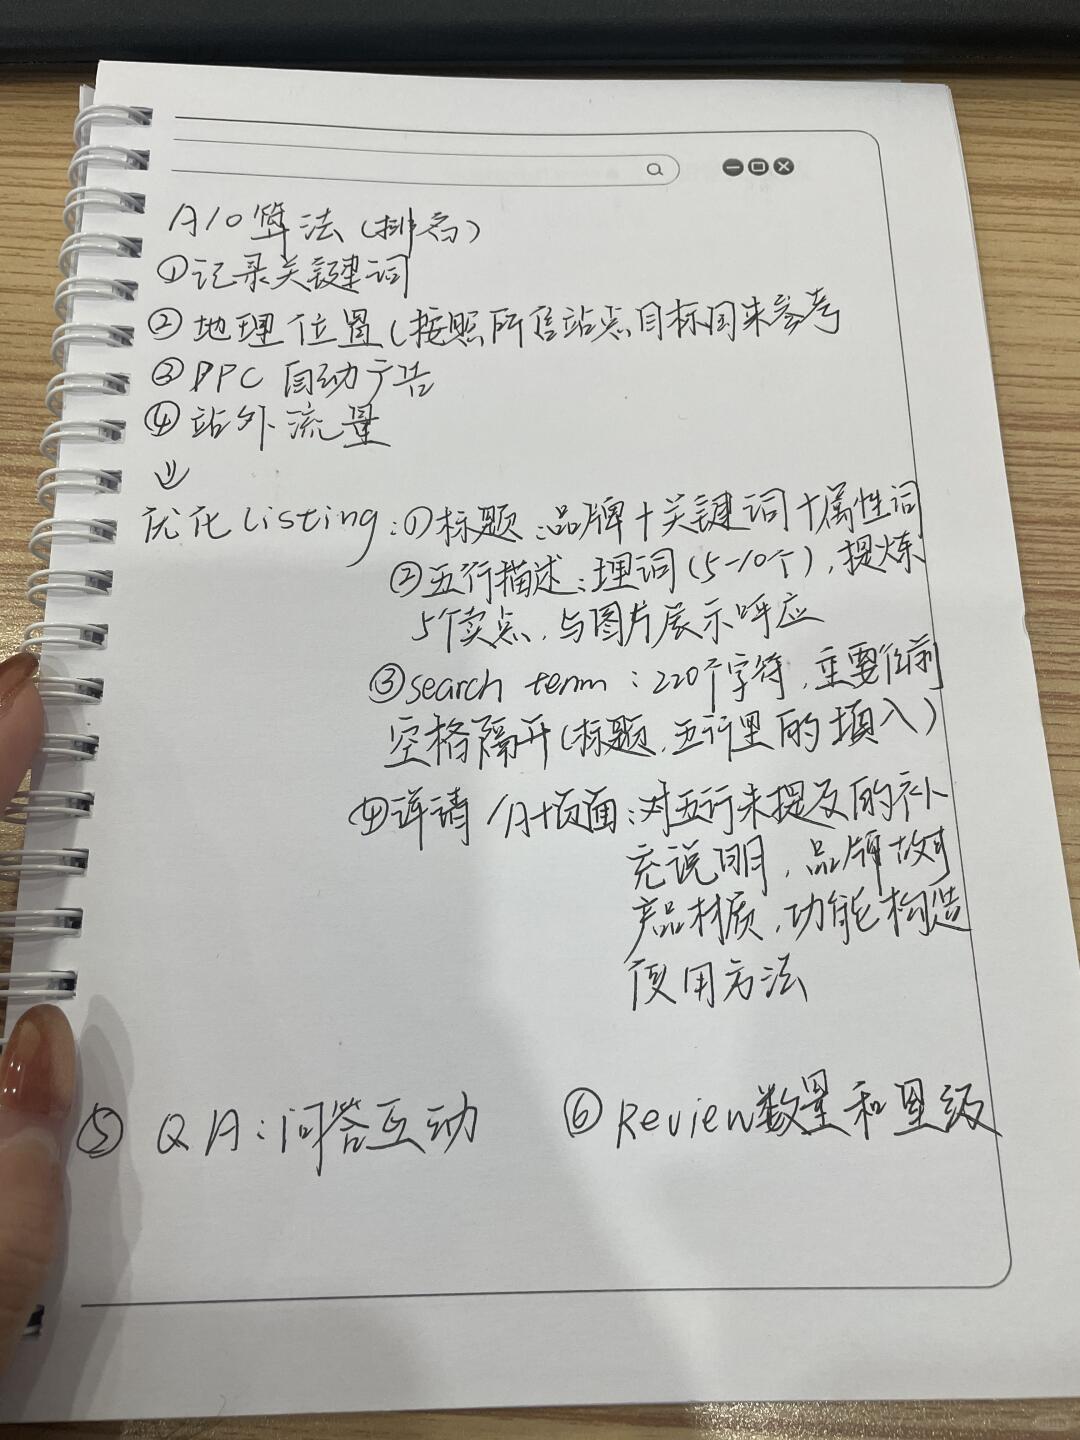 A10算法(排名)
①记录关键词
②地理位置(按照所在站点目标国来参考
③PPC 自动广告
④站外流量
⇓
优化Listing:①标题:品牌+关键词+属性词
②五行描述:埋词(5-10个),提炼
5个卖点,与图片展示呼应
③search term:220个字符,重要在前
空格隔开(标题,五行里的填入)
④详请/A+页面:对五行未提及的补
充说明,品牌故事
产品材质,功能构造
使用方法
⑤ QA:问答互动 ⑥Review数量和星级